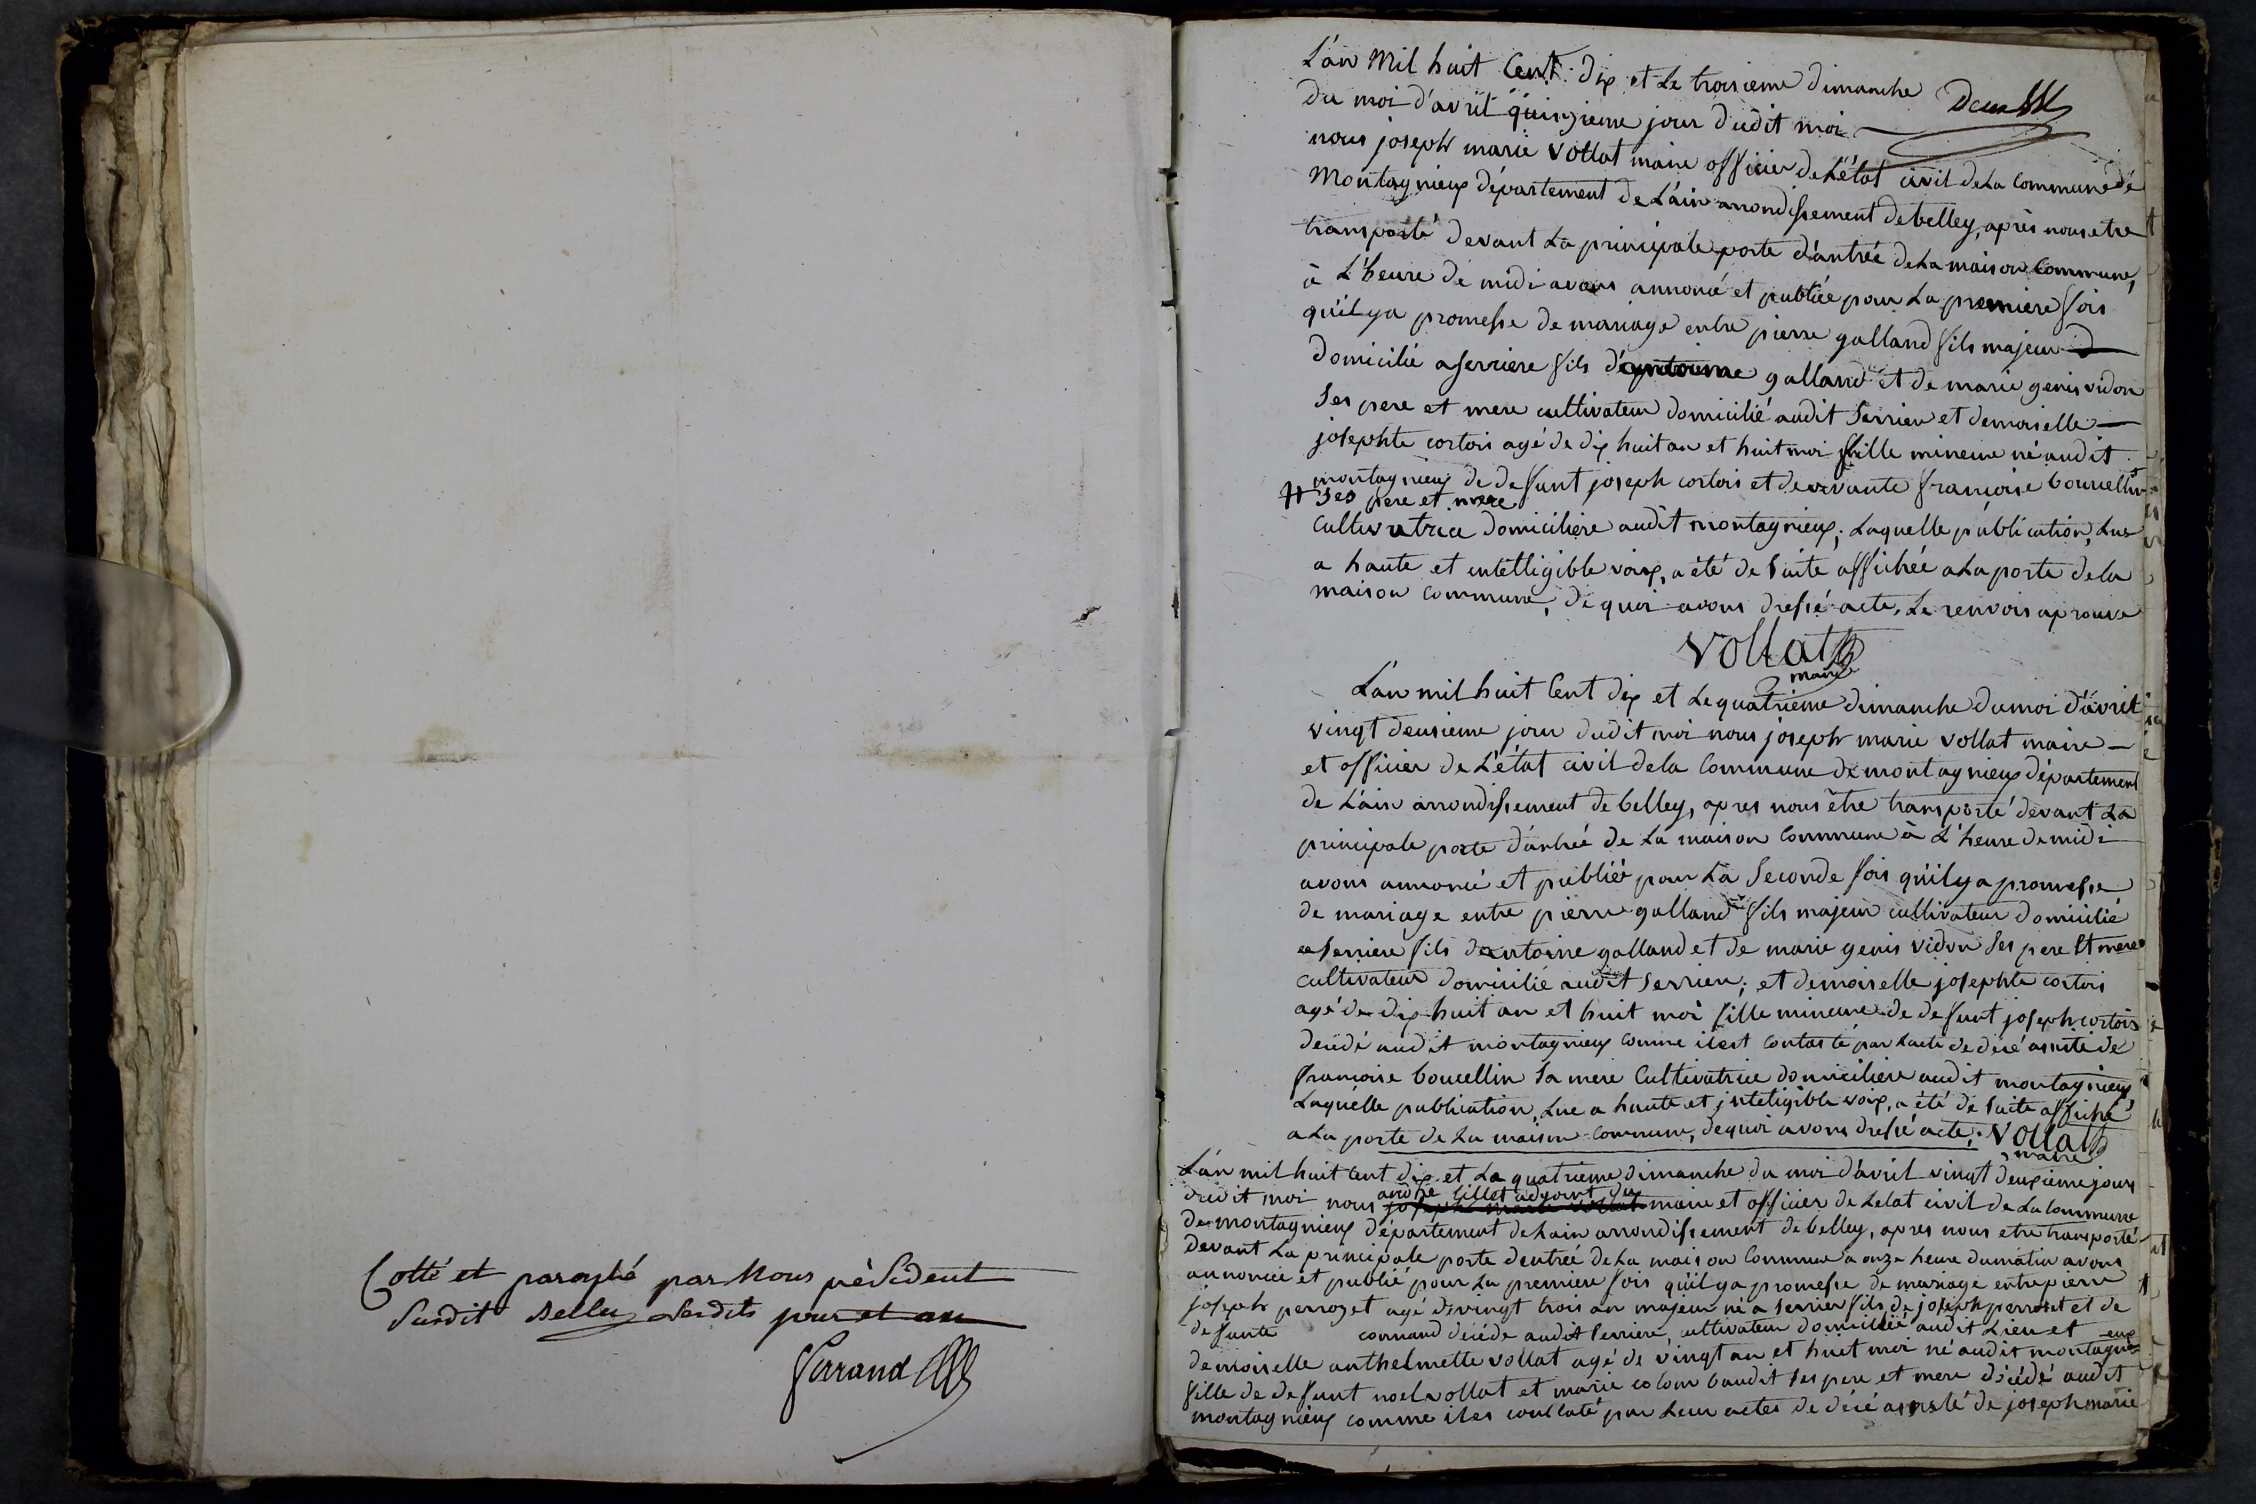 Cotté et paraphé par Nous président
Susdit Belley lesdits jour et an
Ferrand
L'an Mil huit Cent dix et Le troisieme dimanche
Deux
du moi d'avril quinzieme jour dudit moi
nous joseph marie Vollat maire officier de L'état civil de La Commune de
Montagnieux département de L'ain arrondissement de belley, après nous etre
transporté devant La principale porte d'antrée de La maison Commune,
à L'heure de midi avons annoncé et publiée pour La premiere fois
qu'il y a promesse de mariage entre pierre galland fils majeur
domicilié a serriere fils d'antoine galland et de marie genis vidon
Ses pere et mere cultivateur domicilié audit Serriere et demoiselle
josephte cortois agé de dix huit an et huit moi fille mineure né audit
montagnieux de defunt joseph cortois et de vivante françoise boucellin
# Ses pere et mere
Cultivatrice domiciliere audit montagnieux; Laquelle publication, Lue
a haute et intelligible voix, a été de suite affichée a La porte de la
maison Commune, de quoi avons dressé acte, Le renvois aprouve
Vollat
maire
L'an mil huit Cent dix et Le quatrieme dimanche du moi d'avril
vingt deusieme jour dudit moi nous joseph marie vollat maire
et officier de L'état civil de la Commune de montagnieux département
de L'ain arrondissement de belley, apres nous être transporté devant La
principale porte d'antrée de La maison Commune à L'heure de midi
avons annoncé et publiéé pour La Seconde fois qu'il y a promesse
de mariage entre pierre galland fils majeur cultivateur domicilié
a serriere fils d'antoine galland et de marie genis vidon Ses pere Et mere
Cultivateur domicilié audit serriere; et demoiselle josephte cortois
agé de dix huit an et huit moi fille mineure de defunt joseph cortois
décédé audit montagnieux comme il est contasté par L'acte de décé asisté de
françoise boucellin Sa mere Cultivatrice domiciliere audit montagnieux
Laquelle publication, Lue a haute et inteligible voix, a été de suite affiché
a La porte de La maison Commune, de quoi avons dressé acte; Vollat
maire
L'an mil huit Cent dix et La quatrieme dimanche du moi d'avril vingt deuxieme jour
andré Lillet adjoint du
dudit moi nous joseph marie vollat maire et officier de Létat civil de La Commune
de montagnieux département de Lain arrondissement de belley, apres nous etre transporté
devant La principale porte d'entrée de La maison Commune a onze heure du matin avons
annoncée et publié pour La premiere fois qu'il y a promesse de mariage entre pierre
joseph perrozet agé de vingt trois an majeur né a serriere fils de joseph perrozet et de
defunte connand décédé audit Serriere, cultivateur domicilié audit Lieu et
demoiselle anthelmette vollat agé de vingt an et huit moi né audit montagnieux
fille de defunt noel vollat et marie colom baudit Ses pere et mere décédé audit
montagnieux comme il es conslaté par Leur actes de décé asisté de joseph marie